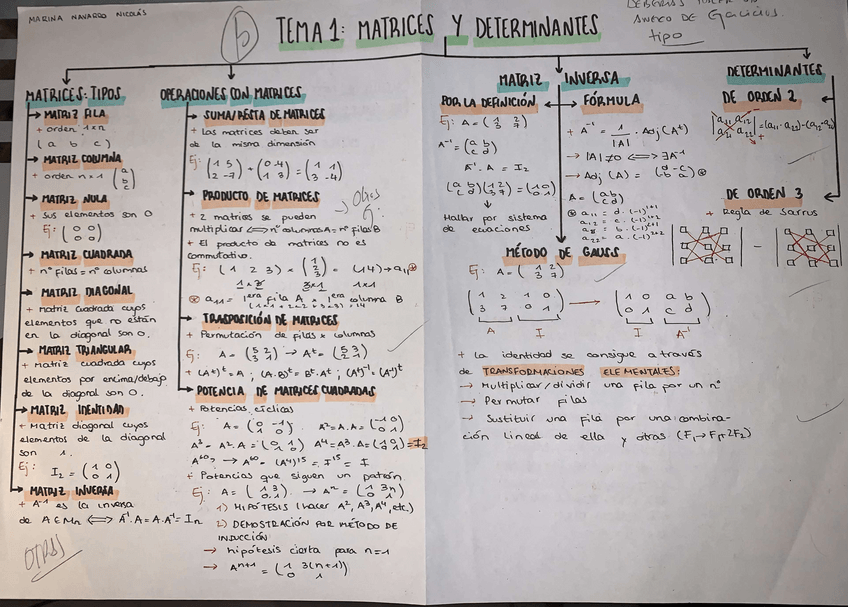 MARINA NAVARRO NICOLÁS
TEMA 1: MATRICES Y DETERMINANTES
ANEXO DE
tipo
MATRICES: TIPOS
→ MATRIZ FILA
+ orden 1xn
(a b c)
→ MATRIZ COLUMNA
+ orden nx1 (a b c)
→ MATRIZ NULA
+ Sus elementos son 0
Ej: (0 0 / 0 0)
→ MATRIZ CUADRADA
+ nº filas = nº columnas
→ MATRIZ DIAGONAL
+ Matriz cuadrada cuyos
elementos que no están
en la diagonal son 0.
→ MATRIZ TRIANGULAR
+ Matriz cuadrada cuyos
elementos por encima/debajo
de la diagonal son 0.
→ MATRIZ IDENTIDAD
+ Matriz diagonal cuyos
elementos de la diagonal
son 1.
Ej: I₂ = (1 0 / 0 1)
→ MATRIZ INVERSA
+ A⁻¹ es la inversa
de A∈Mn ⟺ A⁻¹·A = A·A⁻¹ = In
OTRAS
OPERACIONES CON MATRICES
→ SUMA/RESTA DE MATRICES
+ Las matrices deben ser
de la misma dimensión
Ej: (1 5 / 2 -7) + (0 4 / 1 3) = (1 1 / 3 -4)
→ PRODUCTO DE MATRICES
+ 2 matrices se pueden
multiplicar ⟺ nº columnas A = nº filas B
+ El producto de matrices no es
conmutativo.
Ej: (1 2 3) × (1 2 3) = (14) → a₁₁
1x3 3x1 1x1
a₁₁ = 1era fila A x 1era columna B
(1x1 + 2x2 + 3x3) = 14
→ TRASPOSICIÓN DE MATRICES
+ Permutación de filas x columnas
Ej: A = (5 2 / 2 1) → Aᵗ = (5 3 / 2 1)
+ (Aᵗ)ᵗ = A; (A·B)ᵗ = Bᵗ·Aᵗ; (Aᵗ)⁻¹ = (A⁻¹)ᵗ
→ POTENCIA DE MATRICES CUADRADAS
+ Potencias cíclicas
Ej: A = (0 -1 / 1 0) A² = A·A = (-1 0 / 0 -1)
A³ = A²·A = (0 1 / -1 0) A⁴ = A³·A = (1 0 / 0 1) = I₂
A⁶⁰ → A⁶⁰ = (A⁴)¹⁵ = I¹⁵ = I
+ Potencias que siguen un patrón
Ej: A = (1 3 / 0 1) → Aⁿ = (1 3n / 0 1)
1) HIPÓTESIS (hacer A², A³, A⁴, etc.)
2) DEMOSTRACIÓN POR MÉTODO DE
INDUCCIÓN
→ hipótesis cierta para n=1
→ Aⁿ⁺¹ = (1 3(n+1) / 0 1)
MATRIZ INVERSA
POR LA DEFINICIÓN
Ej: A = (1 2 / 3 7)
A⁻¹ = (a b / c d)
A⁻¹·A = I₂
(a b / c d)(1 2 / 3 7) = (1 0 / 0 1)
Hallar por sistema
de ecuaciones
FÓRMULA
+ A⁻¹ = 1/|A| · Adj(Aᵗ)
→ |A| ≠ 0 ⟺ ∃A⁻¹
→ Adj(A) = (d -c / -b a)
A = (a b / c d)
a₁₁ = d·(-1)¹⁺¹
a₁₂ = c·(-1)¹⁺²
b·(-1)²⁺¹
a₂₂ = a·(-1)²⁺²
MÉTODO DE GAUSS
Ej: A = (1 2 / 3 7)
(1 2 1 0 / 3 7 0 1) → (1 0 a b / 0 1 c d)
A I I A⁻¹
+ La identidad se consigue a través
de TRANSFORMACIONES ELEMENTALES:
→ Multiplicar/dividir una fila por un nº
→ Permutar filas
→ Sustituir una fila por una combina-
ción lineal de ella y otras (F₁→F₁+2F₂)
DETERMINANTES
DE ORDEN 2
|a₁₁ a₁₂ / a₂₁ a₂₂| = (a₁₁·a₂₂) - (a₁₂·a₂₁)
DE ORDEN 3
+ Regla de Sarrus